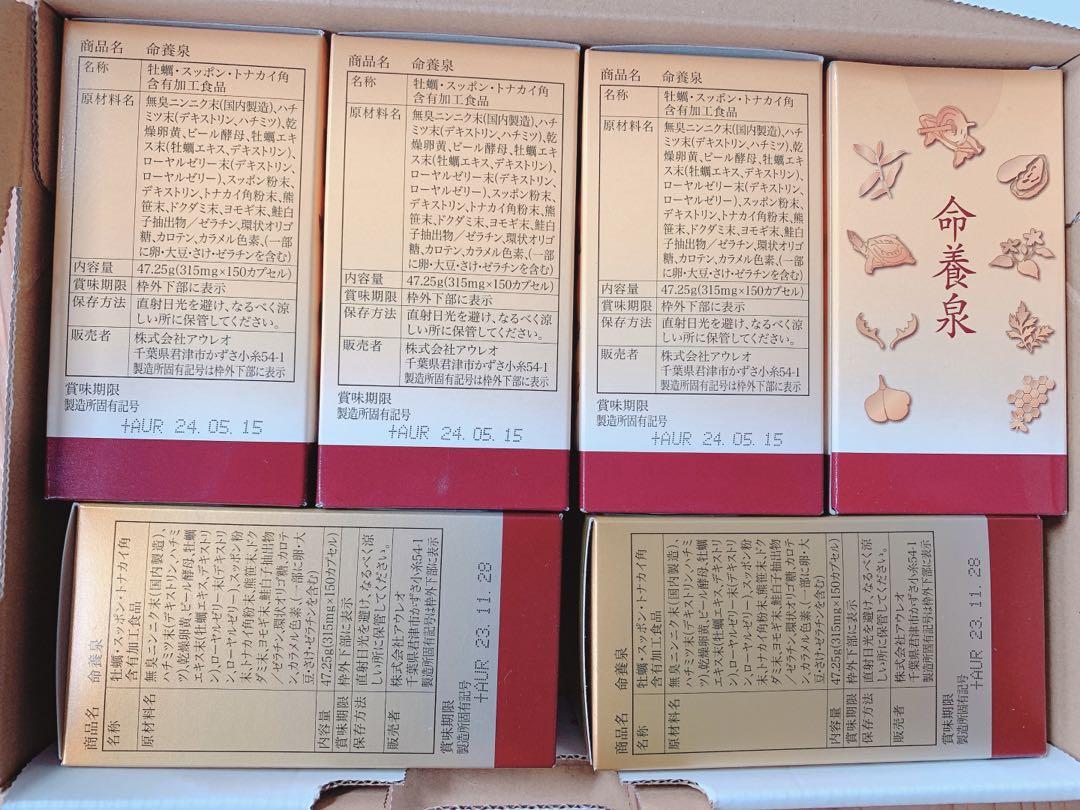 商品名 命養泉
名称 牡蠣・スッポン・トナカイ角
含有加工食品
原材料名 無臭ニンニク末(国内製造)、ハチ
ミツ末(デキストリン、ハチミツ)、乾
燥卵黄、ビール酵母、牡蠣エキ
ス末(牡蠣エキス、デキストリン)、
ローヤルゼリー末(デキストリン、
ローヤルゼリー)、スッポン粉末、
デキストリン、トナカイ角粉末、熊
笹末、ドクダミ末、ヨモギ末、鮭白
子抽出物/ゼラチン、環状オリゴ
糖、カロテン、カラメル色素、(一部
に卵・大豆・さけ・ゼラチンを含む)
内容量 47.25g(315mg×150カプセル)
賞味期限 枠外下部に表示
保存方法 直射日光を避け、なるべく涼
しい所に保管してください。
販売者 株式会社アウレオ
千葉県君津市かずさ小糸54-1
製造所固有記号は枠外下部に表示
賞味期限
製造所固有記号
+AUR 24.05.15
商品名 命養泉
名称 牡蠣・スッポン・トナカイ角
含有加工食品
原材料名 無臭ニンニク末(国内製造)、ハチ
ミツ末(デキストリン、ハチミツ)、乾
燥卵黄、ビール酵母、牡蠣エキ
ス末(牡蠣エキス、デキストリン)、
ローヤルゼリー末(デキストリン、
ローヤルゼリー)、スッポン粉末、
デキストリン、トナカイ角粉末、熊
笹末、ドクダミ末、ヨモギ末、鮭白
子抽出物/ゼラチン、環状オリゴ
糖、カロテン、カラメル色素、(一部
に卵・大豆・さけ・ゼラチンを含む)
内容量 47.25g(315mg×150カプセル)
賞味期限 枠外下部に表示
保存方法 直射日光を避け、なるべく涼
しい所に保管してください。
販売者 株式会社アウレオ
千葉県君津市かずさ小糸54-1
製造所固有記号は枠外下部に表示
賞味期限
製造所固有記号
+AUR 24.05.15
商品名 命養泉
名称 牡蠣・スッポン・トナカイ角
含有加工食品
原材料名 無臭ニンニク末(国内製造)、ハチ
ミツ末(デキストリン、ハチミツ)、乾
燥卵黄、ビール酵母、牡蠣エキ
ス末(牡蠣エキス、デキストリン)、
ローヤルゼリー末(デキストリン、
ローヤルゼリー)、スッポン粉末、
デキストリン、トナカイ角粉末、熊
笹末、ドクダミ末、ヨモギ末、鮭白
子抽出物/ゼラチン、環状オリゴ
糖、カロテン、カラメル色素、(一部
に卵・大豆・さけ・ゼラチンを含む)
内容量 47.25g(315mg×150カプセル)
賞味期限 枠外下部に表示
保存方法 直射日光を避け、なるべく涼
しい所に保管してください。
販売者 株式会社アウレオ
千葉県君津市かずさ小糸54-1
製造所固有記号は枠外下部に表示
賞味期限
製造所固有記号
+AUR 24.05.15
命養泉
商品名 命養泉
名称 牡蠣・スッポン・トナカイ角
含有加工食品
原材料名 無臭ニンニク末(国内製造)、
ハチミツ末(デキストリン、ハチミ
ツ)、乾燥卵黄、ビール酵母、牡蠣
エキス末(牡蠣エキス、デキストリ
ン)、ローヤルゼリー末(デキストリ
ン、ローヤルゼリー)、スッポン粉
末、トナカイ角粉末、熊笹末、ドク
ダミ末、ヨモギ末、鮭白子抽出物
/ゼラチン、環状オリゴ糖、カロテ
ン、カラメル色素、(一部に卵・大
豆・さけ・ゼラチンを含む)
内容量 47.25g(315mg×150カプセル)
賞味期限 枠外下部に表示
保存方法 直射日光を避け、なるべく涼
しい所に保管してください。
販売者 株式会社アウレオ
千葉県君津市かずさ小糸54-1
製造所固有記号は枠外下部に表示
賞味期限
製造所固有記号
+AUR 23.11.28
商品名 命養泉
名称 牡蠣・スッポン・トナカイ角
含有加工食品
原材料名 無臭ニンニク末(国内製造)、
ハチミツ末(デキストリン、ハチミ
ツ)、乾燥卵黄、ビール酵母、牡蠣
エキス末(牡蠣エキス、デキストリ
ン)、ローヤルゼリー末(デキストリ
ン、ローヤルゼリー)、スッポン粉
末、トナカイ角粉末、熊笹末、ドク
ダミ末、ヨモギ末、鮭白子抽出物
/ゼラチン、環状オリゴ糖、カロテ
ン、カラメル色素、(一部に卵・大
豆・さけ・ゼラチンを含む)
内容量 47.25g(315mg×150カプセル)
賞味期限 枠外下部に表示
保存方法 直射日光を避け、なるべく涼
しい所に保管してください。
販売者 株式会社アウレオ
千葉県君津市かずさ小糸54-1
製造所固有記号は枠外下部に表示
賞味期限
製造所固有記号
+AUR 23.11.28